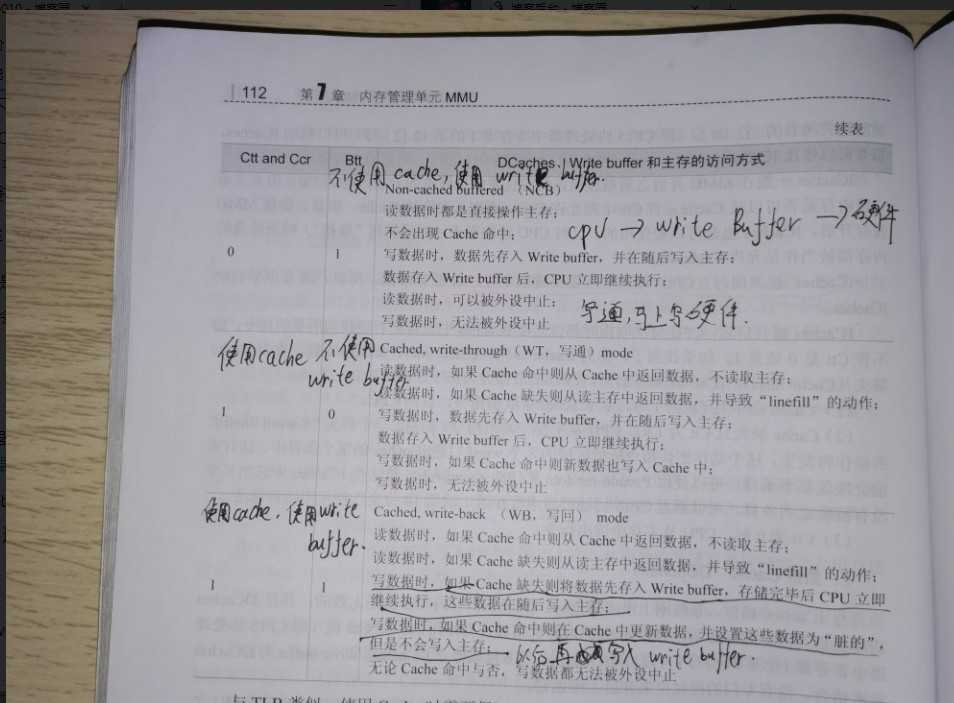 112 第7章 内存管理单元 MMU
续表
Ctt and Ccr Btt DCaches、Write buffer 和主存的访问方式
不使用cache,使用 write buffer.
Non-cached buffered （NCB）
读数据时都是直接操作主存；
不会出现 Cache 命中；
cpu → write Buffer → 硬件
0 1 写数据时，数据先存入 Write buffer，并在随后写入主存；
数据存入 Write buffer 后，CPU 立即继续执行；
读数据时，可以被外设中止；
写数据时，无法被外设中止
写通,马上写硬件.
使用cache 不使用
write buffer
Cached, write-through（WT，写通）mode
读数据时，如果 Cache 命中则从 Cache 中返回数据，不读取主存；
读数据时，如果 Cache 缺失则从读主存中返回数据，并导致“linefill”的动作；
1 0 写数据时，数据先存入 Write buffer，并在随后写入主存；
数据存入 Write buffer 后，CPU 立即继续执行；
写数据时，如果 Cache 命中则新数据也写入 Cache 中；
写数据时，无法被外设中止
使用cache, 使用write
buffer.
Cached, write-back （WB，写回） mode
读数据时，如果 Cache 命中则从 Cache 中返回数据，不读取主存；
读数据时，如果 Cache 缺失则从读主存中返回数据，并导致“linefill”的动作；
1 1 写数据时，如果 Cache 缺失则将数据先存入 Write buffer，存储完毕后 CPU 立即
继续执行，这些数据在随后写入主存；
写数据时，如果 Cache 命中则在 Cache 中更新数据，并设置这些数据为“脏的”，
但是不会写入主存；
以后再写入 write buffer.
无论 Cache 命中与否，写数据都无法被外设中止